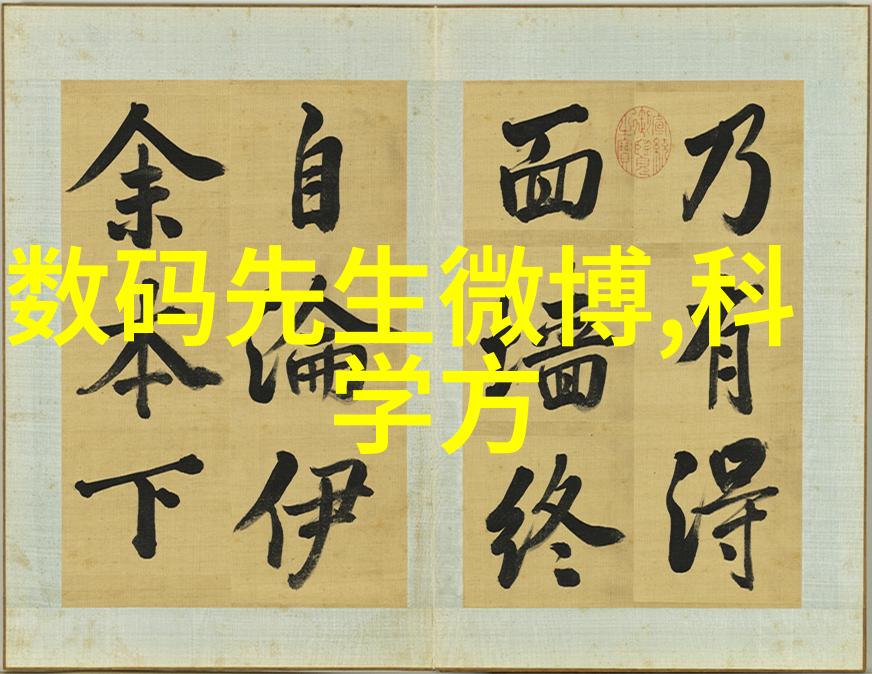 数码先生微博,科
学方
乃有得
面墙终
自淪伊
余本下